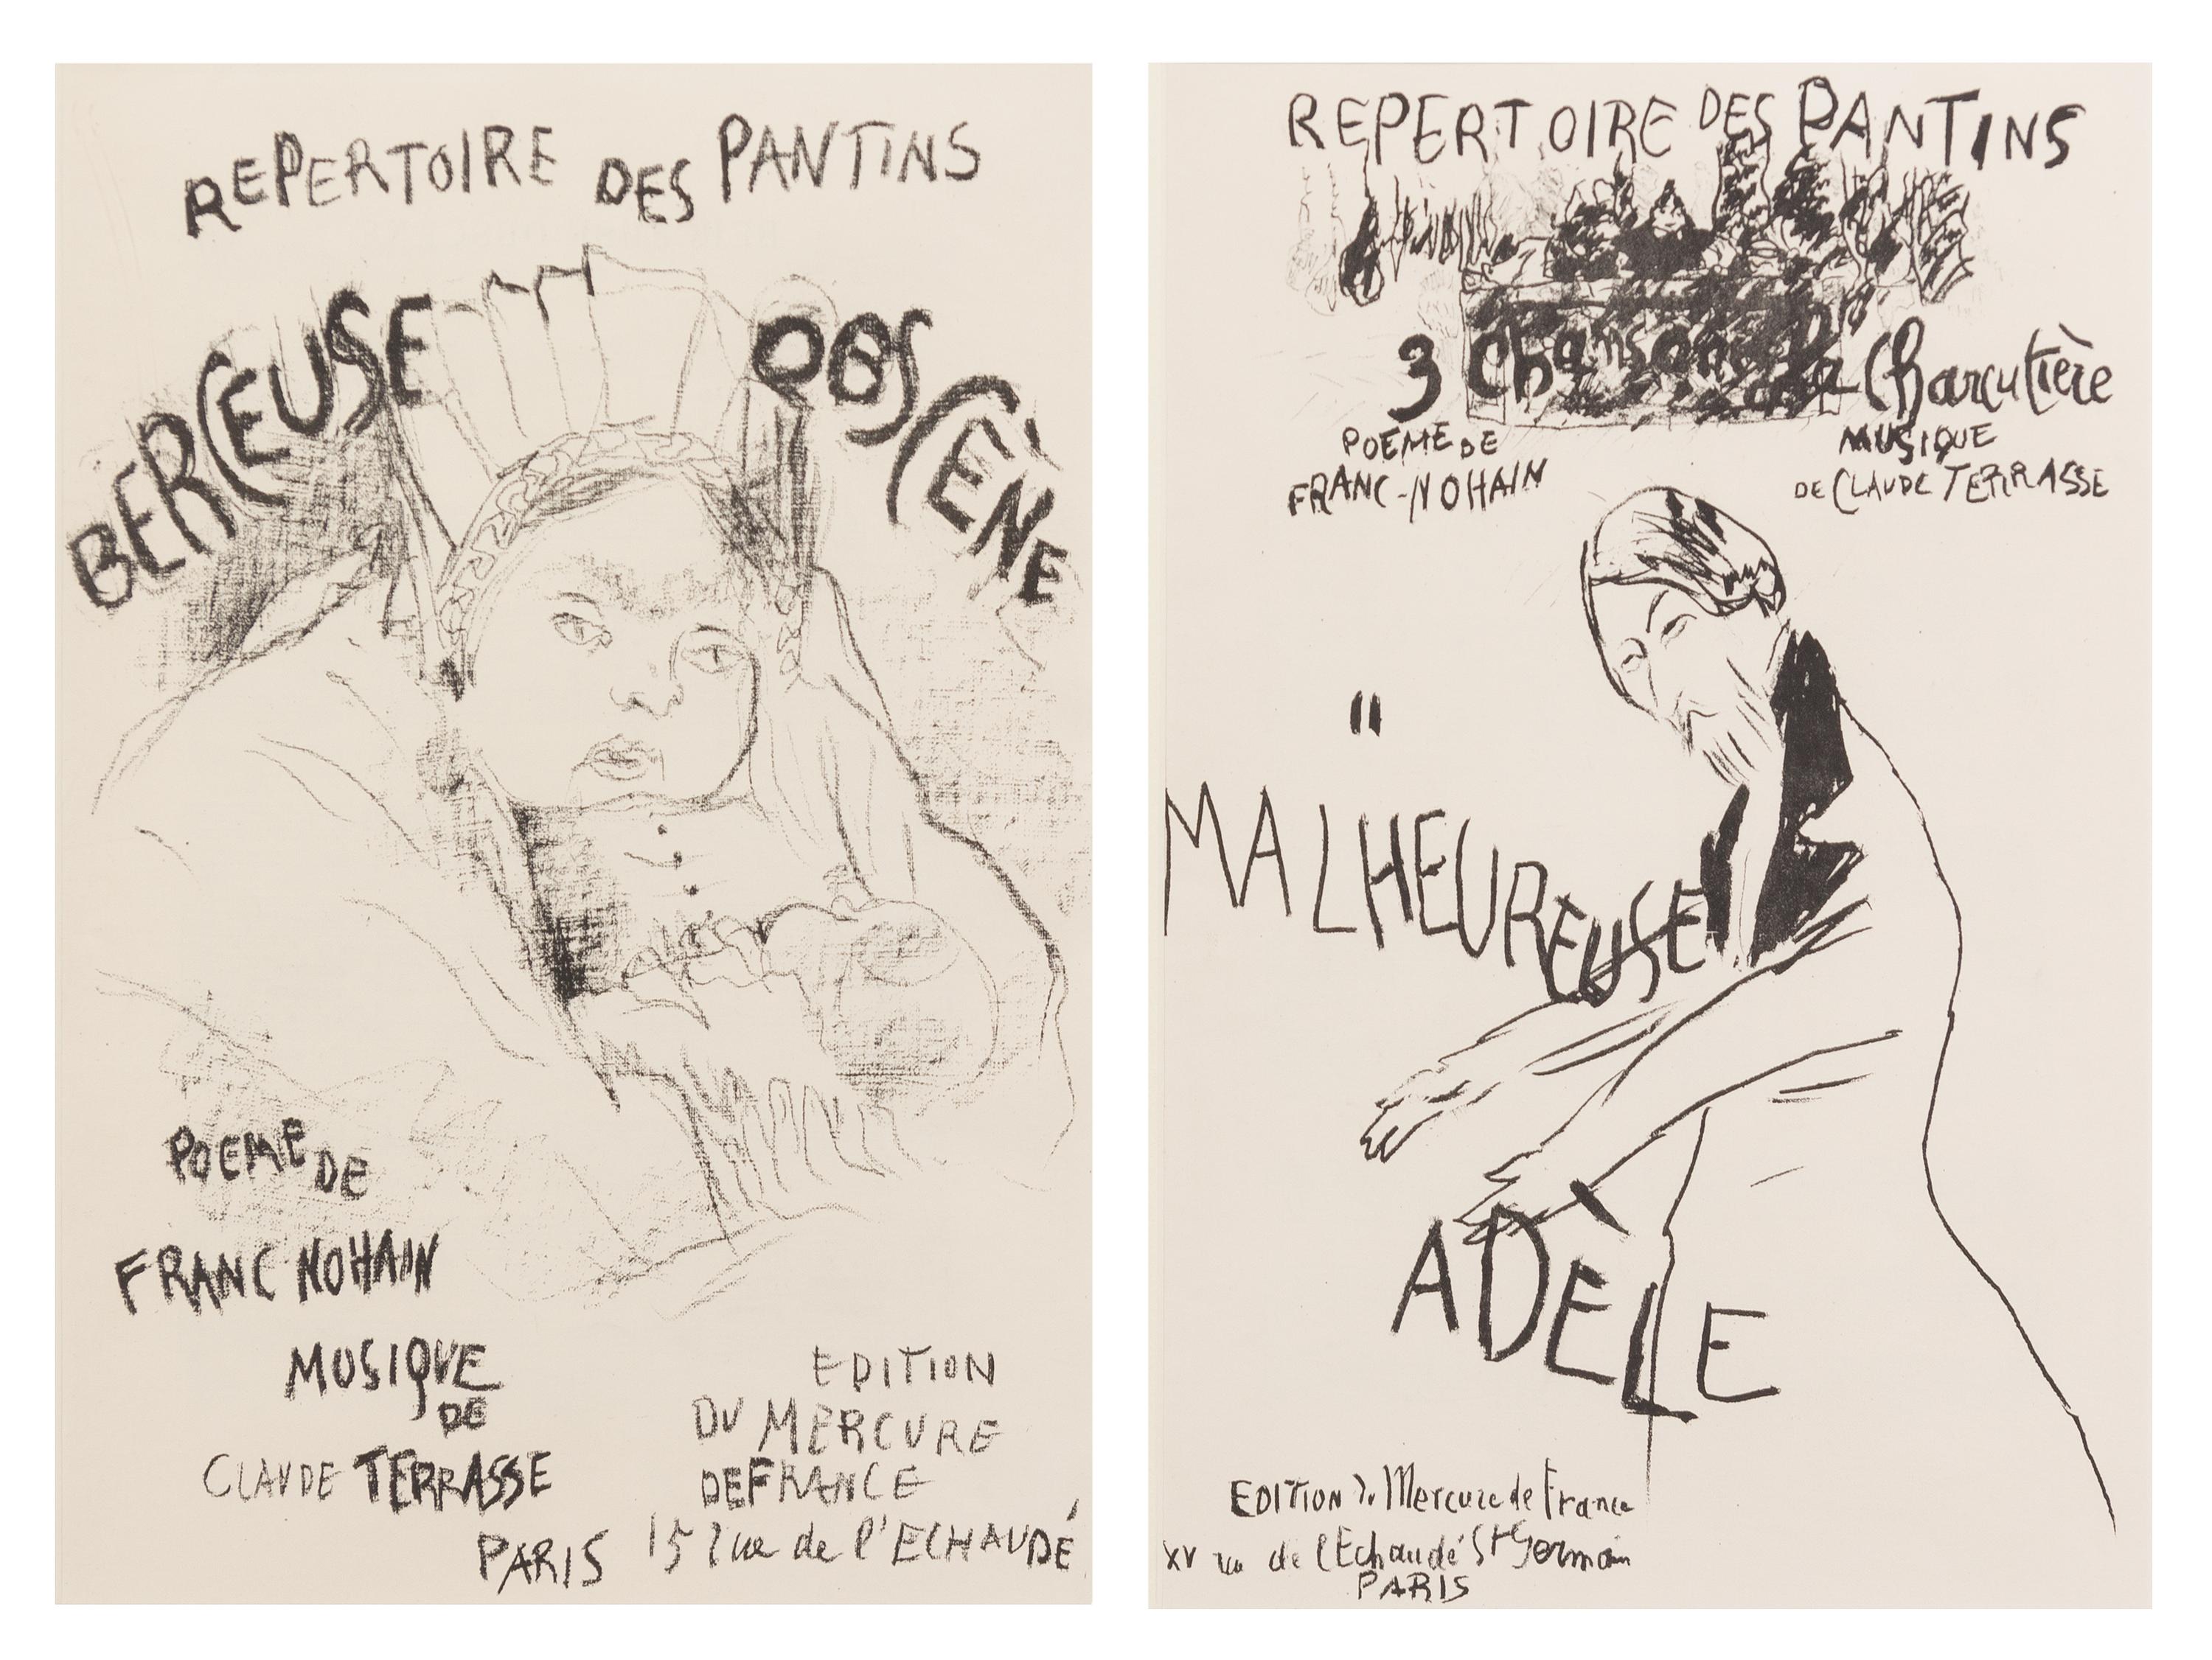 REPERTOIRE DES PANTINS
BERCEUSE OBSCÈNE
POEME DE
FRANC NOHAIN
MUSIQUE
DE
CLAUDE TERRASSE
EDITION
DU MERCURE
DE FRANCE
PARIS 15 rue de l'ECHAUDÉ
REPERTOIRE DES PANTINS
3 Chansons à la Charcutière
POEME DE
FRANC-NOHAIN
MUSIQUE
DE CLAUDE TERRASSE
"
MALHEUREUSE
ADÈLE
EDITION du Mercure de France
XV rue de l'Echaudé St Germain
PARIS